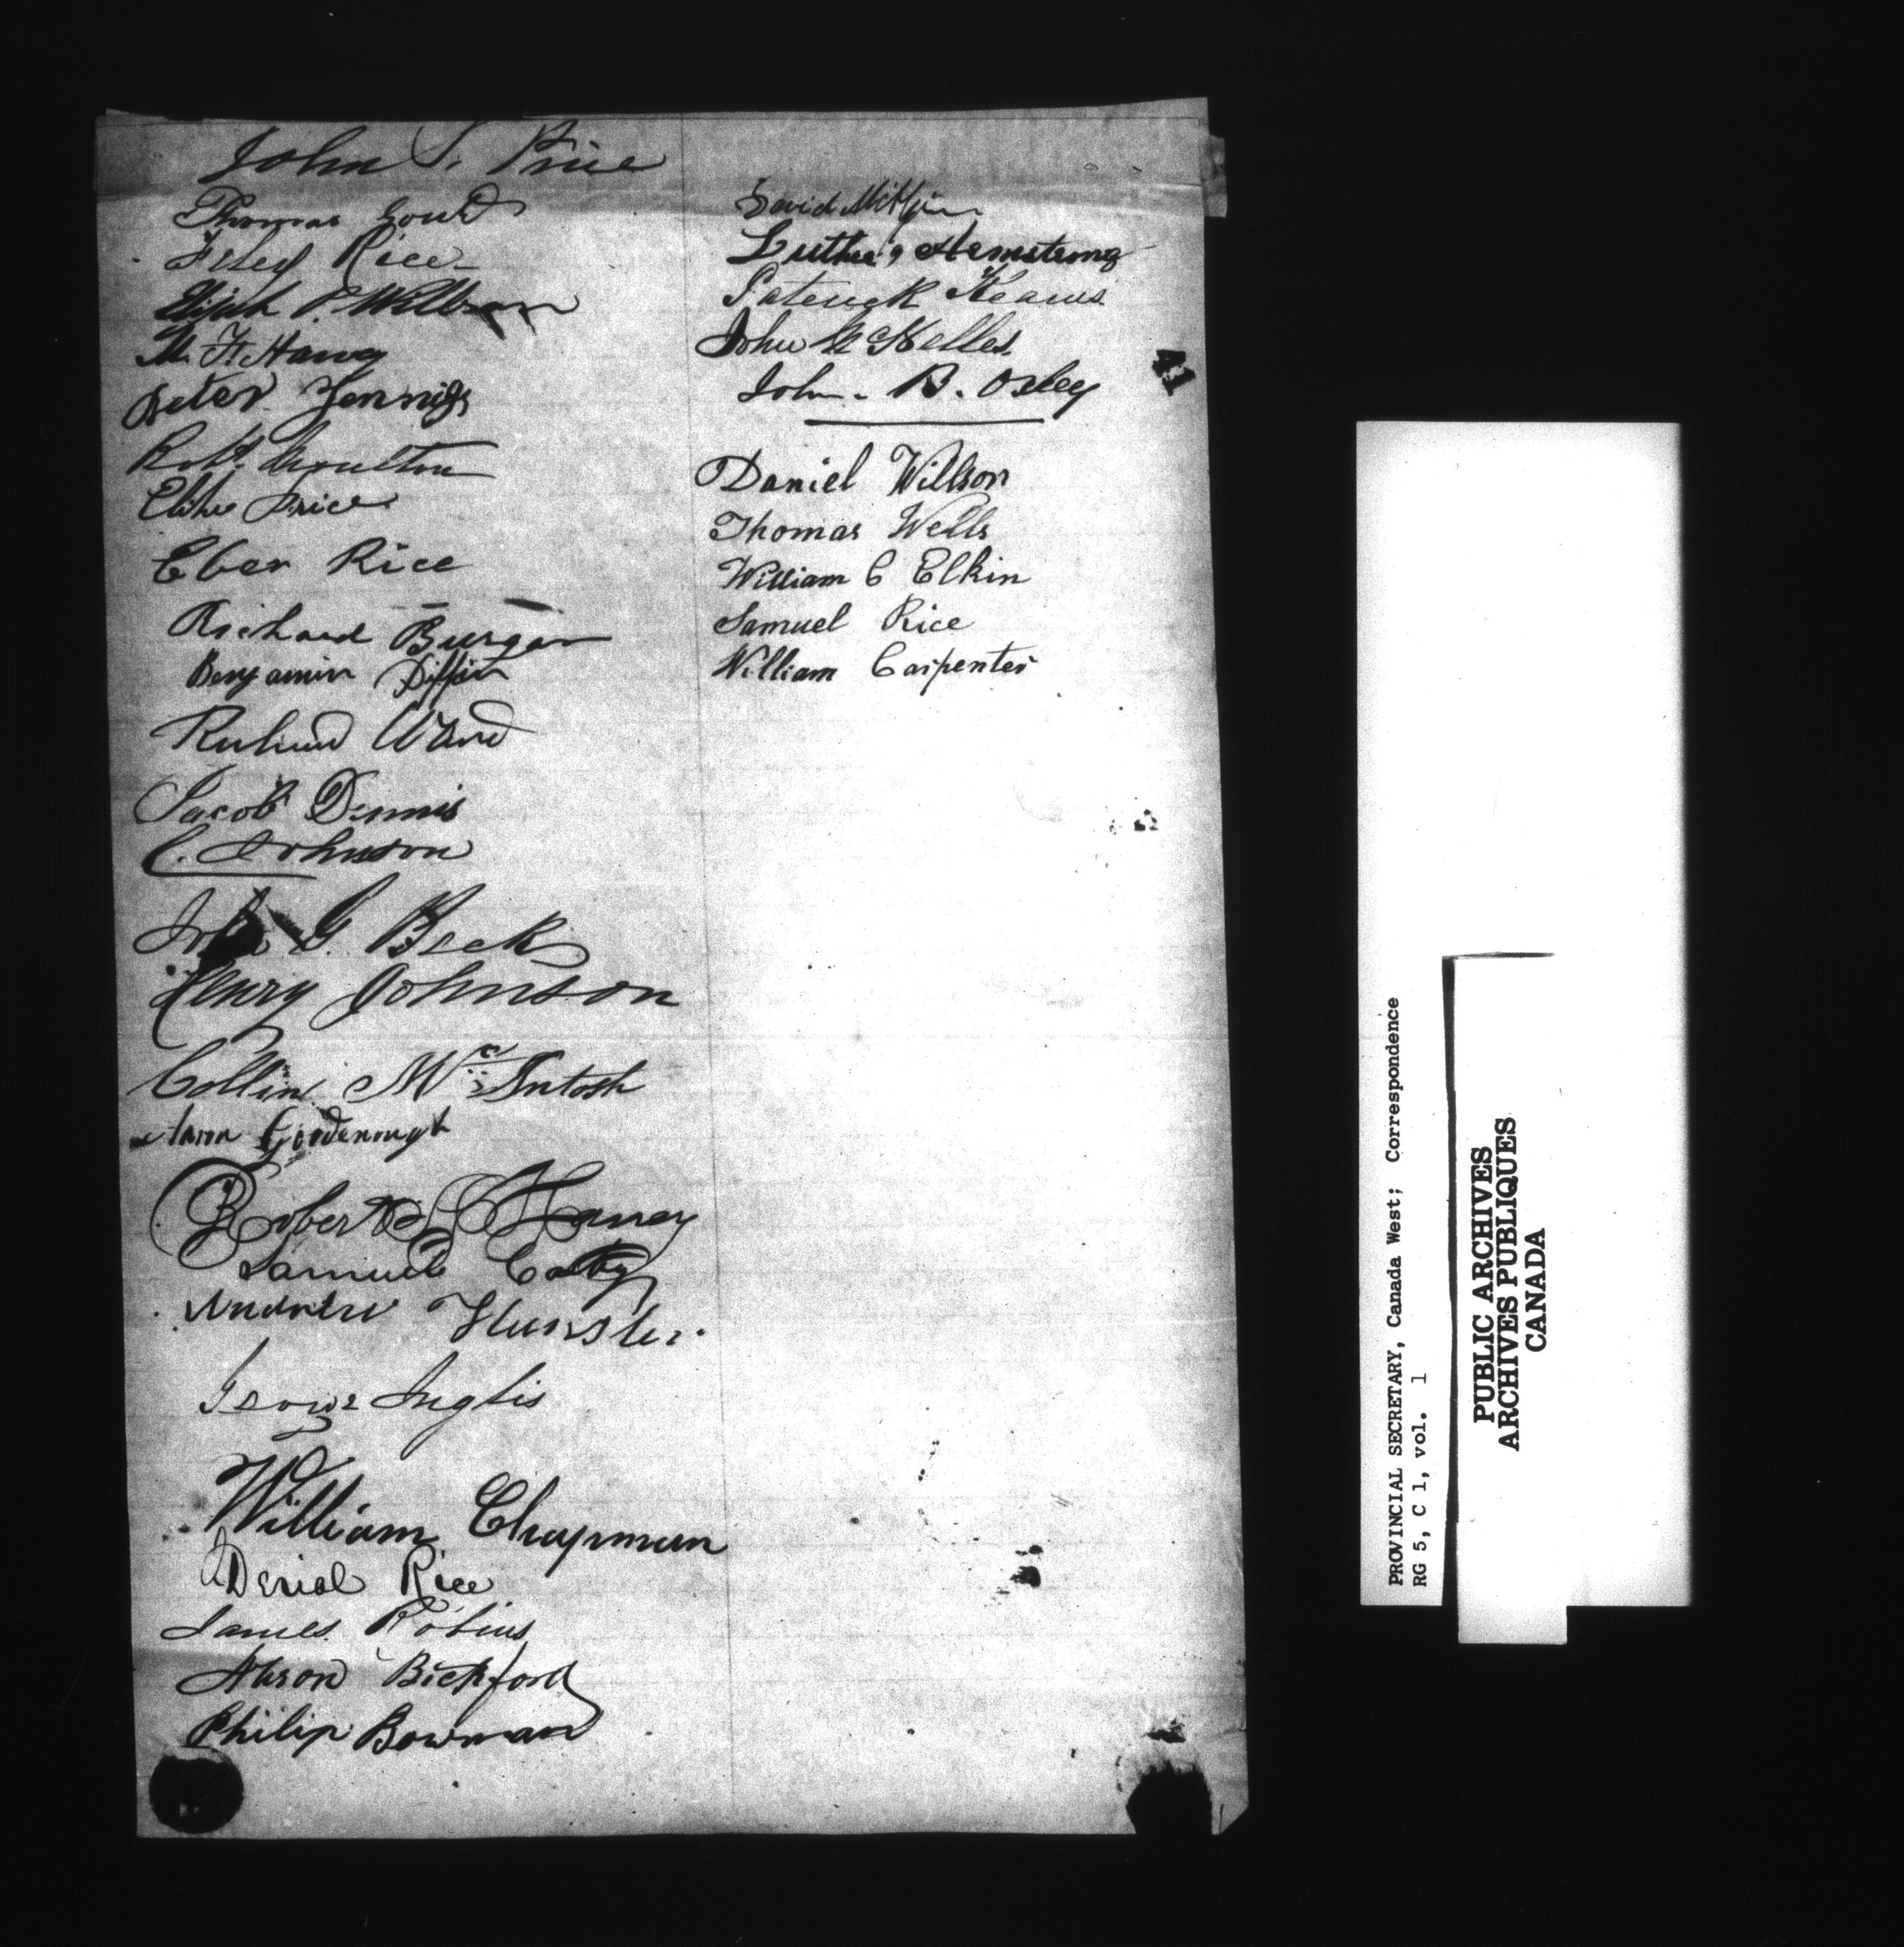 John S. Price
Thomas Gould
Rice
Elijah P. Willson
M. F. Haney
Peter Jennigs
Robt. Moulton
Elihu Price
Eber Rice
Richard Burger
Benjamin Diffin
Richard Ward
Jacob Dennis
C. Johnson
John G Beck
Henry Johnson
Collin Mc Intosh
Aaron Goodenough
Robert Haney
Samuel
Andrew Hunster
George Inglis
William Chapman
Derial Rice
James Robins
Abson Bickford
Philip Bowman
David
Luther Hemsteng
Paterick Kearns
John Mc Kelles
John. B. Oxley
Daniel Willson
Thomas Wells
William C Elkin
Samuel Rice
William Carpenter
PROVINCIAL SECRETARY, Canada West; Correspondence
RG 5, C 1, vol. 1
PUBLIC ARCHIVES
ARCHIVES PUBLIQUES
CANADA